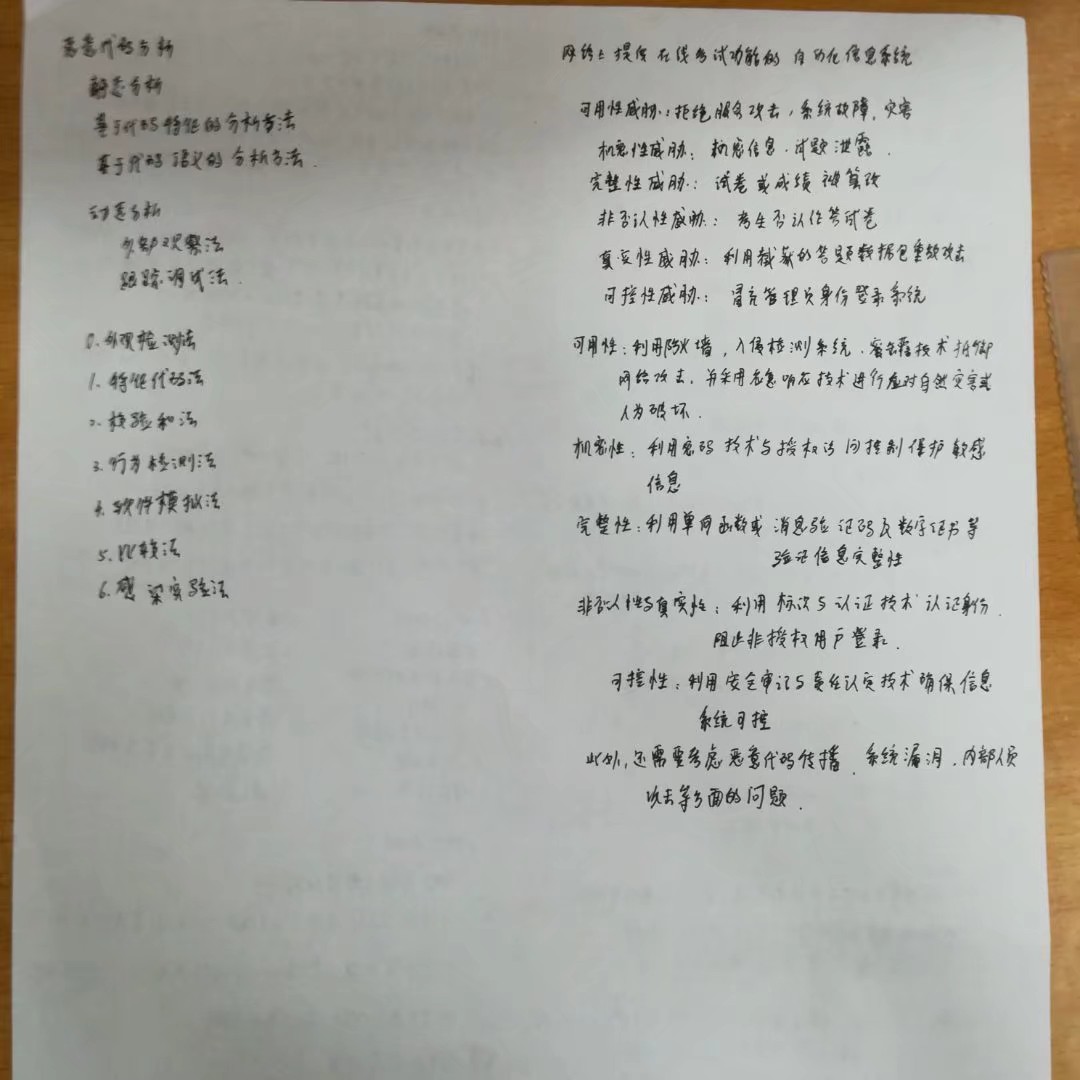 恶意代码分析
静态分析
基于代码特征的分析方法
基于代码语义的分析方法.
动态分析
外部观察法
跟踪调试法.
0.外观检测法
1.特征代码法
2.校验和法
3.行为检测法
4.软件模拟法
5.比较法
6.感染实验法
网络上提供在线考试功能的自动化信息系统
可用性威胁:拒绝服务攻击,系统故障,灾害
机密性威胁:机密信息、试题泄露.
完整性威胁:试卷或成绩被篡改
非否认性威胁:考生否认作答试卷
真实性威胁:利用截获的答题数据包重放攻击
可控性威胁:冒充管理员身份登录系统
可用性:利用防火墙,入侵检测系统、蜜罐技术抵御
网络攻击,并采用应急响应技术进行应对自然灾害或
人为破坏.
机密性:利用密码技术与授权访问控制保护敏感
信息
完整性:利用单向函数或消息验证码及数字证书等
验证信息完整性
非否认性与真实性:利用标识与认证技术认证身份.
阻止非授权用户登录.
可控性:利用安全审计与责任认定技术确保信息
系统可控
此外,还需要考虑恶意代码传播、系统漏洞、内部人员
攻击等方面的问题.